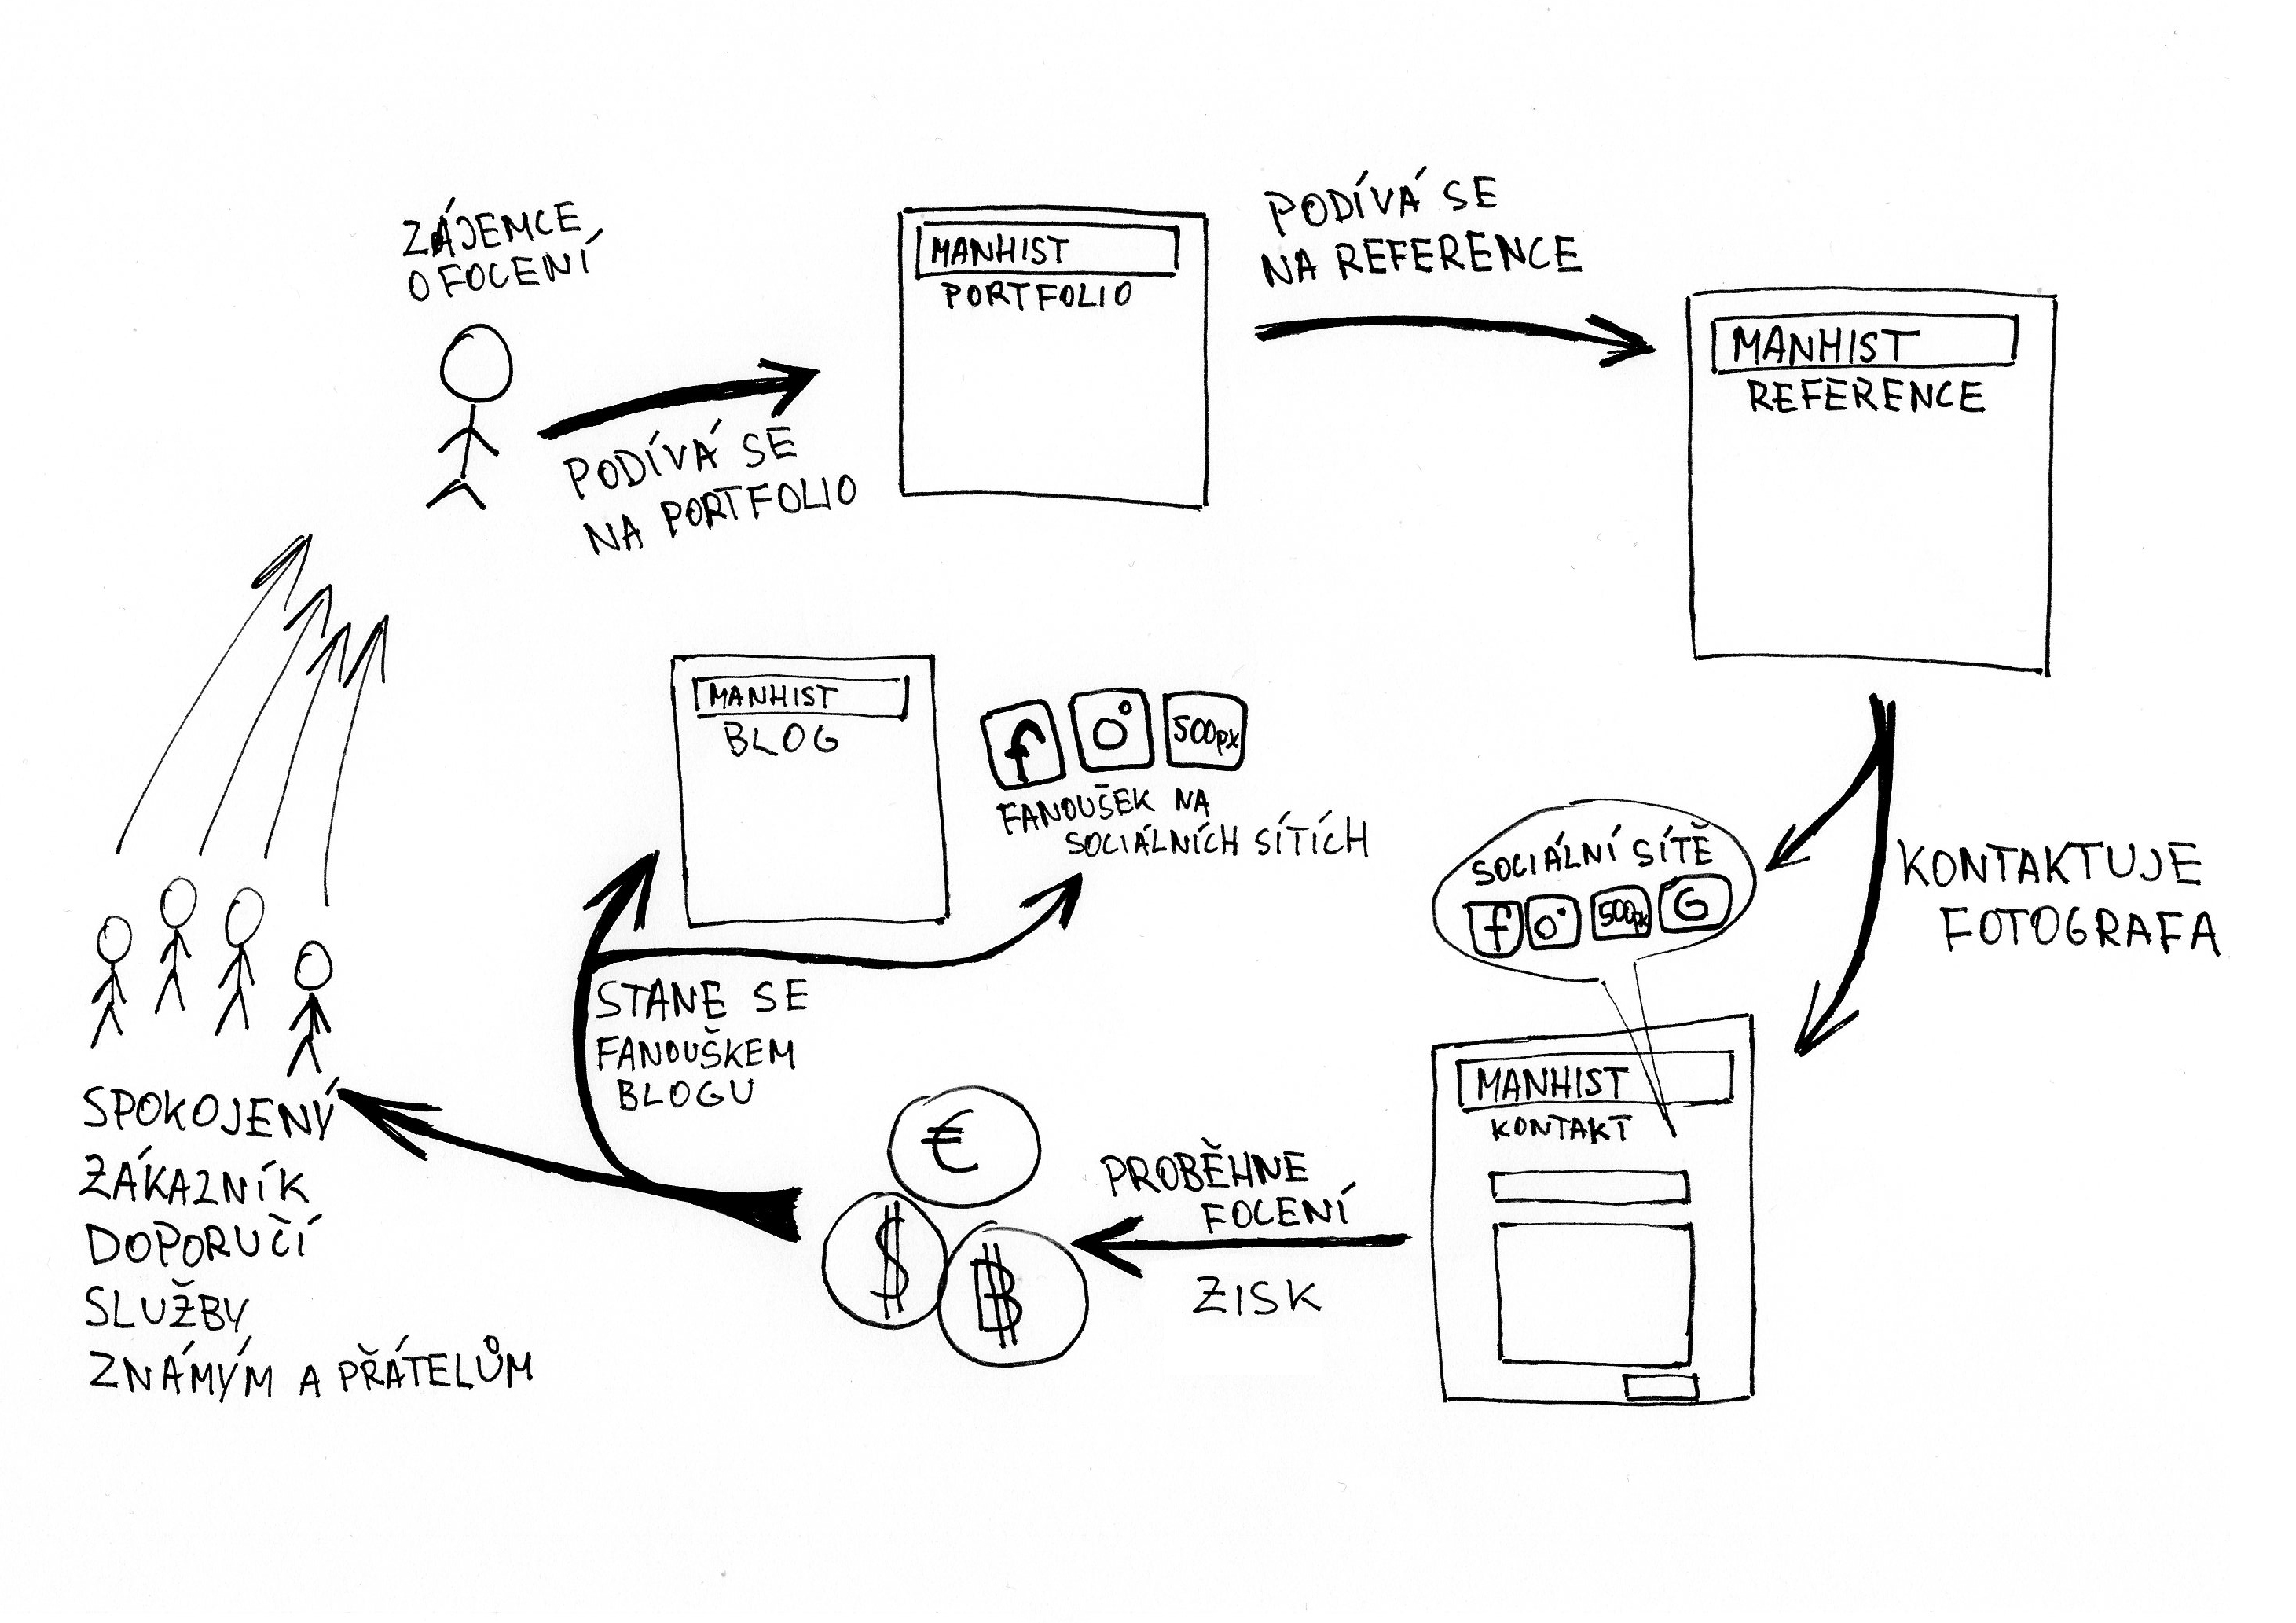 ZÁJEMCE
O FOCENÍ
PODÍVÁ SE
NA PORTFOLIO
MANHIST
PORTFOLIO
PODÍVÁ SE
NA REFERENCE
MANHIST
REFERENCE
KONTAKTUJE
FOTOGRAFA
SOCIÁLNÍ SÍTĚ
f 500px G
MANHIST
KONTAKT
PROBĚHNE
FOCENÍ
ZISK
€
$ ₿
STANE SE
FANOUŠKEM
BLOGU
MANHIST
BLOG
f 500px
FANOUŠEK NA
SOCIÁLNÍCH SÍTÍCH
SPOKOJENÝ
ZÁKAZNÍK
DOPORUČÍ
SLUŽBY
ZNÁMÝM A PŘÁTELŮM